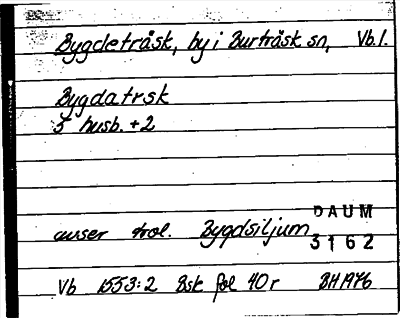 Bygdeträsk, by i Burträsk sn, Vb.l.
Bygdatrsk
5 husb. + 2
DAUM
avser trol. Bygdsiljum
3162
Vb 1553:2 Bsk fol 40r BH 1976